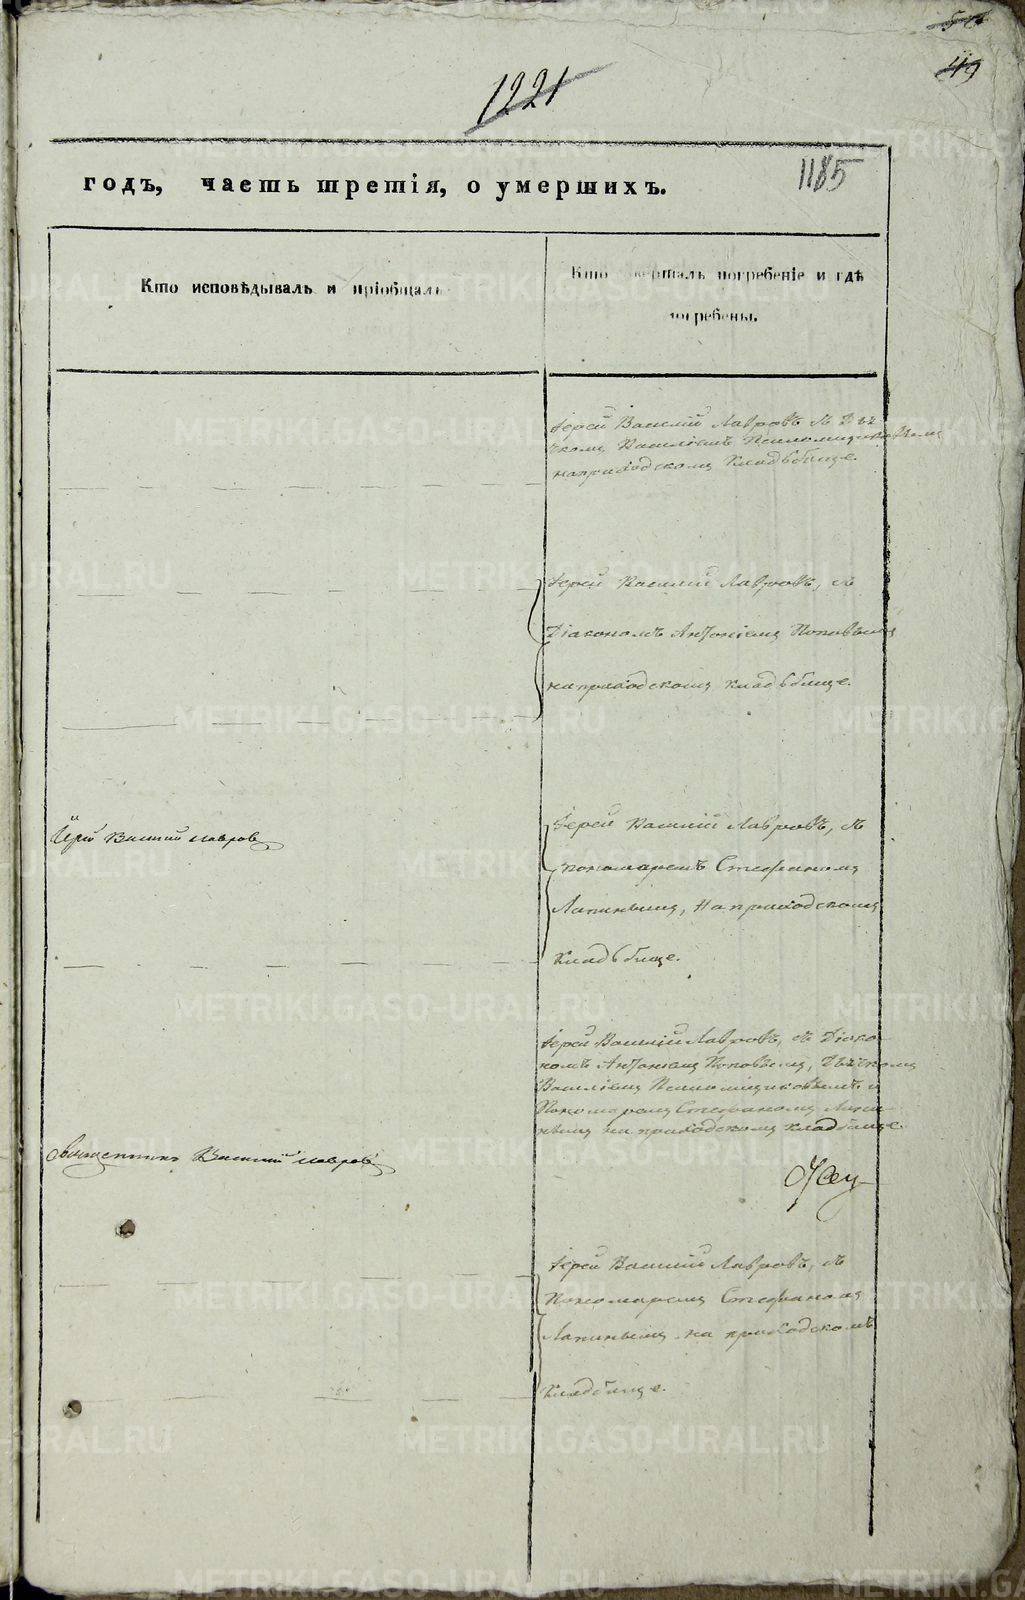 49
1221
1185
годъ, часть третія, о умершихъ.
Кто исповѣдывалъ и пріобщалъ
Кто вершалъ погребеніе и гдѣ
погребены.
Іерей Василій Лавровъ съ Дья-
чкомъ Василіемъ
на приходскомъ кладбище.
Іерей Василій Лавровъ, съ
Діакономъ Антоніемъ Поповымъ
на приходскомъ кладбище.
Іерей Василий Лавров
Іерей Василій Лавровъ, съ
пономаремъ Стефаномъ
Лапинымъ, на приходскомъ
кладбище.
Іерей Василій Лавровъ, съ Діако-
номъ Антоніемъ Поповымъ, Дьячкомъ
Василіемъ и
Пономаремъ Стефаномъ Лапи-
нымъ на приходскомъ кладбище.
Священникъ Василий Лавровъ
Іерей Василій Лавровъ, съ
Пономаремъ Стефаномъ
Лапинымъ на приходскомъ
кладбище.
METRIKI.GASO-URAL.RU